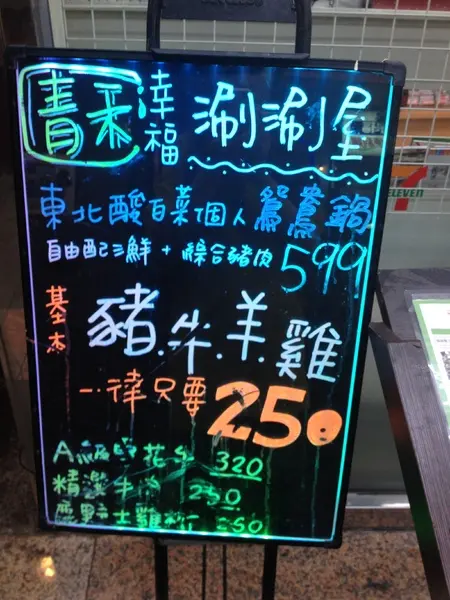 青禾 幸福 涮涮屋
東北酸白菜個人鴛鴦鍋
自由配三鮮 + 綜合豬肉 599
基本 豬.牛.羊.雞
一律只要 250
320
精選牛 250
土雞 250
7 ELEVEN